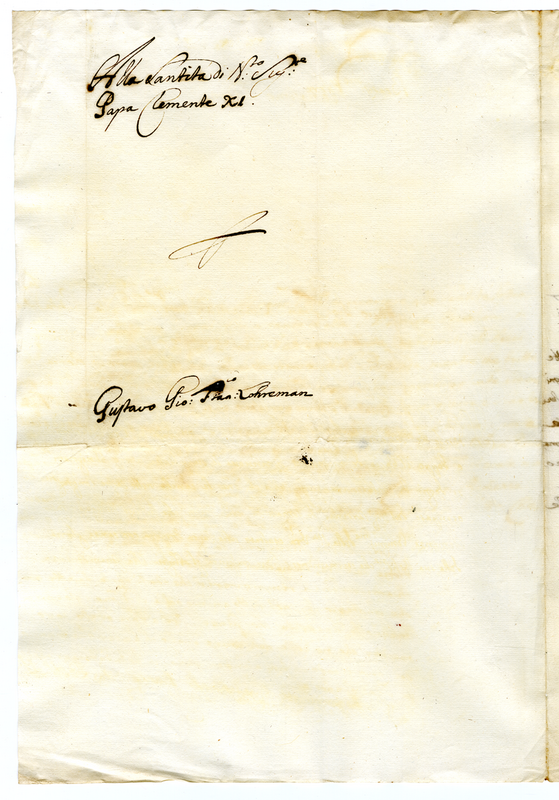 Alla Santita di N:ro Sig:re
Papa Clemente XI.
Gustavo Gio: Fran:co Lohreman